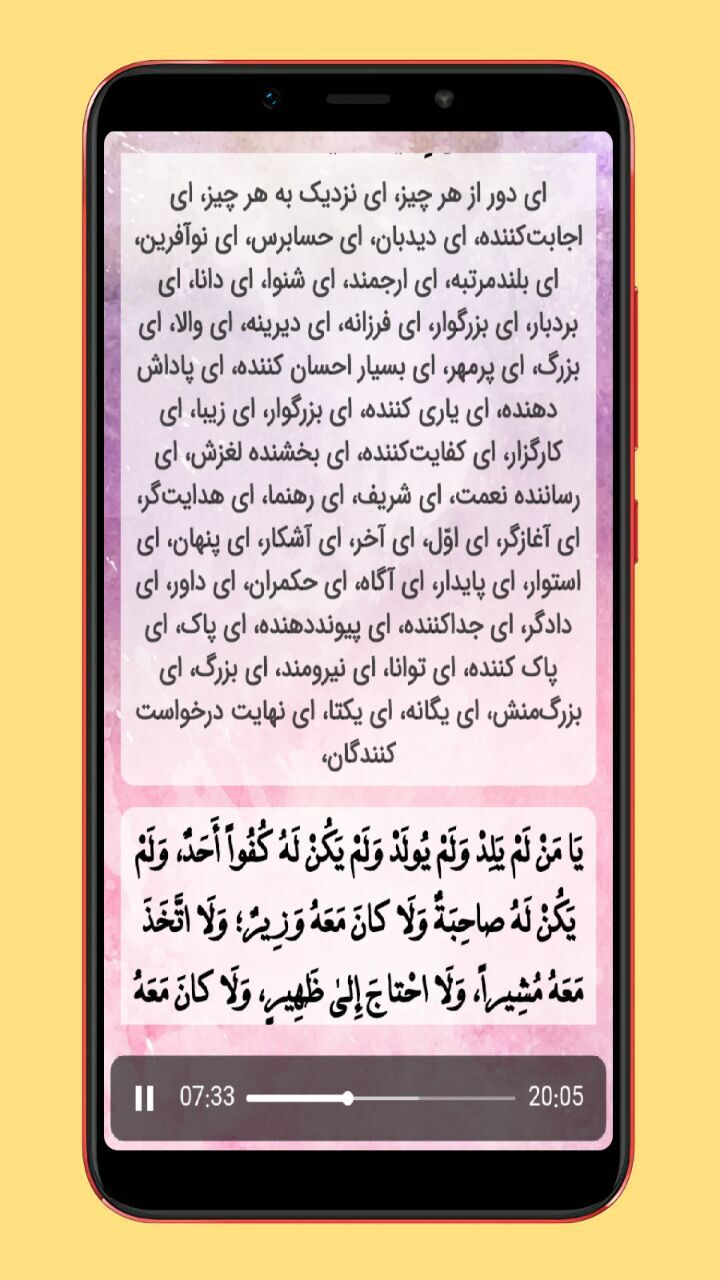 ای دور از هر چیز، ای نزدیک به هر چیز، ای
اجابت‌کننده، ای دیدبان، ای حسابرس، ای نوآفرین،
ای بلندمرتبه، ای ارجمند، ای شنوا، ای دانا، ای
بردبار، ای بزرگوار، ای فرزانه، ای دیرینه، ای والا، ای
بزرگ، ای پرمهر، ای بسیار احسان کننده، ای پاداش
دهنده، ای یاری کننده، ای بزرگوار، ای زیبا، ای
کارگزار، ای کفایت‌کننده، ای بخشنده لغزش، ای
رساننده نعمت، ای شریف، ای رهنما، ای هدایت‌گر،
ای آغازگر، ای اوّل، ای آخر، ای آشکار، ای پنهان، ای
استوار، ای پایدار، ای آگاه، ای حکمران، ای داور، ای
دادگر، ای جداکننده، ای پیونددهنده، ای پاک، ای
پاک کننده، ای توانا، ای نیرومند، ای بزرگ، ای
بزرگ‌منش، ای یگانه، ای یکتا، ای نهایت درخواست
کنندگان،
يَا مَنْ لَمْ يَلِدْ وَلَمْ يُولَدْ وَلَمْ يَكُنْ لَهُ كُفُواً أَحَدٌ، وَلَمْ
يَكُنْ لَهُ صاحِبَةٌ وَلَا كانَ مَعَهُ وَزِيرٌ؛ وَلَا اتَّخَذَ
مَعَهُ مُشِيراً، وَلَا احْتاجَ إِلىٰ ظَهِيرٍ، وَلَا كانَ مَعَهُ
07:33 20:05